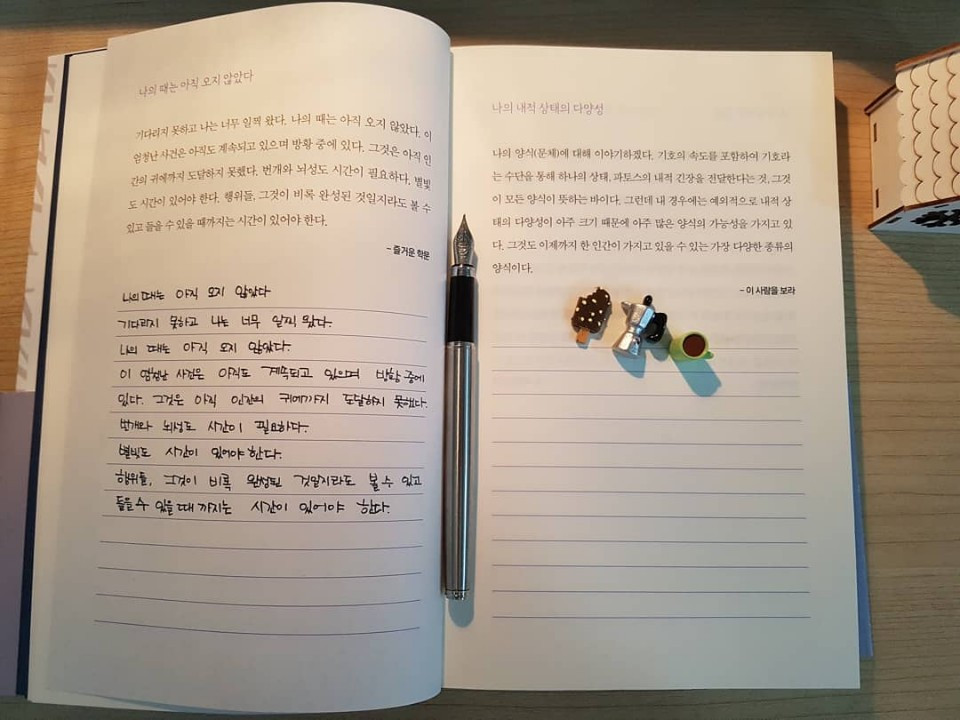 나의 때는 아직 오지 않았다
기다리지 못하고 나는 너무 일찍 왔다. 나의 때는 아직 오지 않았다. 이
엄청난 사건은 아직도 계속되고 있으며 방황 중에 있다. 그것은 아직 인
간의 귀에까지 도달하지 못했다. 번개와 뇌성도 시간이 필요하다. 별빛
도 시간이 있어야 한다. 행위들, 그것이 비록 완성된 것일지라도 볼 수
있고 들을 수 있을 때까지는 시간이 있어야 한다.
– 즐거운 학문
나의 때는 아직 오지 않았다
기다리지 못하고 나는 너무 일찍 왔다.
나의 때는 아직 오지 않았다.
이 엄청난 사건은 아직도 계속되고 있으며 방황 중에
있다. 그것은 아직 인간의 귀에까지 도달하지 못했다.
번개와 뇌성도 시간이 필요하다.
별빛도 시간이 있어야 한다.
행위들, 그것이 비록 완성된 것일지라도 볼 수 있고
들을 수 있을 때 까지는 시간이 있어야 한다.
나의 내적 상태의 다양성
나의 양식(문체)에 대해 이야기하겠다. 기호의 속도를 포함하여 기호라
는 수단을 통해 하나의 상태, 파토스의 내적 긴장을 전달한다는 것, 그것
이 모든 양식이 뜻하는 바이다. 그런데 내 경우에는 예외적으로 내적 상
태의 다양성이 아주 크기 때문에 아주 많은 양식의 가능성을 가지고 있
다. 그것도 이제까지 한 인간이 가지고 있을 수 있는 가장 다양한 종류의
양식이다.
– 이 사람을 보라